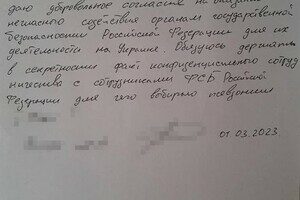 даю добровольное согласие на оказание
негласного содействия органам государственной
безопасности Российской Федерации для их
деятельности на Украине. Обязуюсь держать
в секретности факт конфиденциального сотруд
ничества с сотрудниками ФСБ Российской
Федерации для чего выбираю псевдоним
01.03.2023